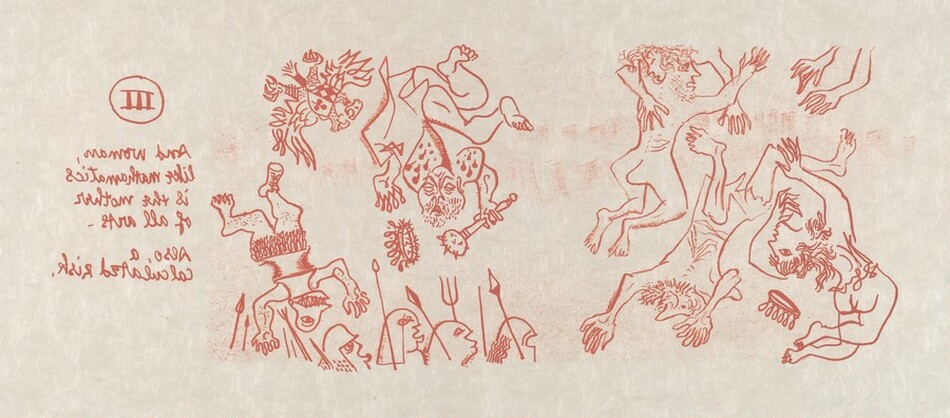 III
And woman,
like mathematics
is the mother
of all arts -
Also, a
calculated risk.